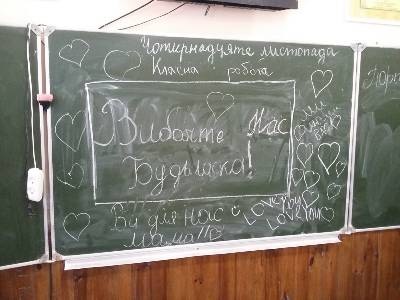 Чотирнадцяте листопада
Класна робота
Вибачте Нас
Будьласка!
Ви для нас є
мама!!
Love you
Love you